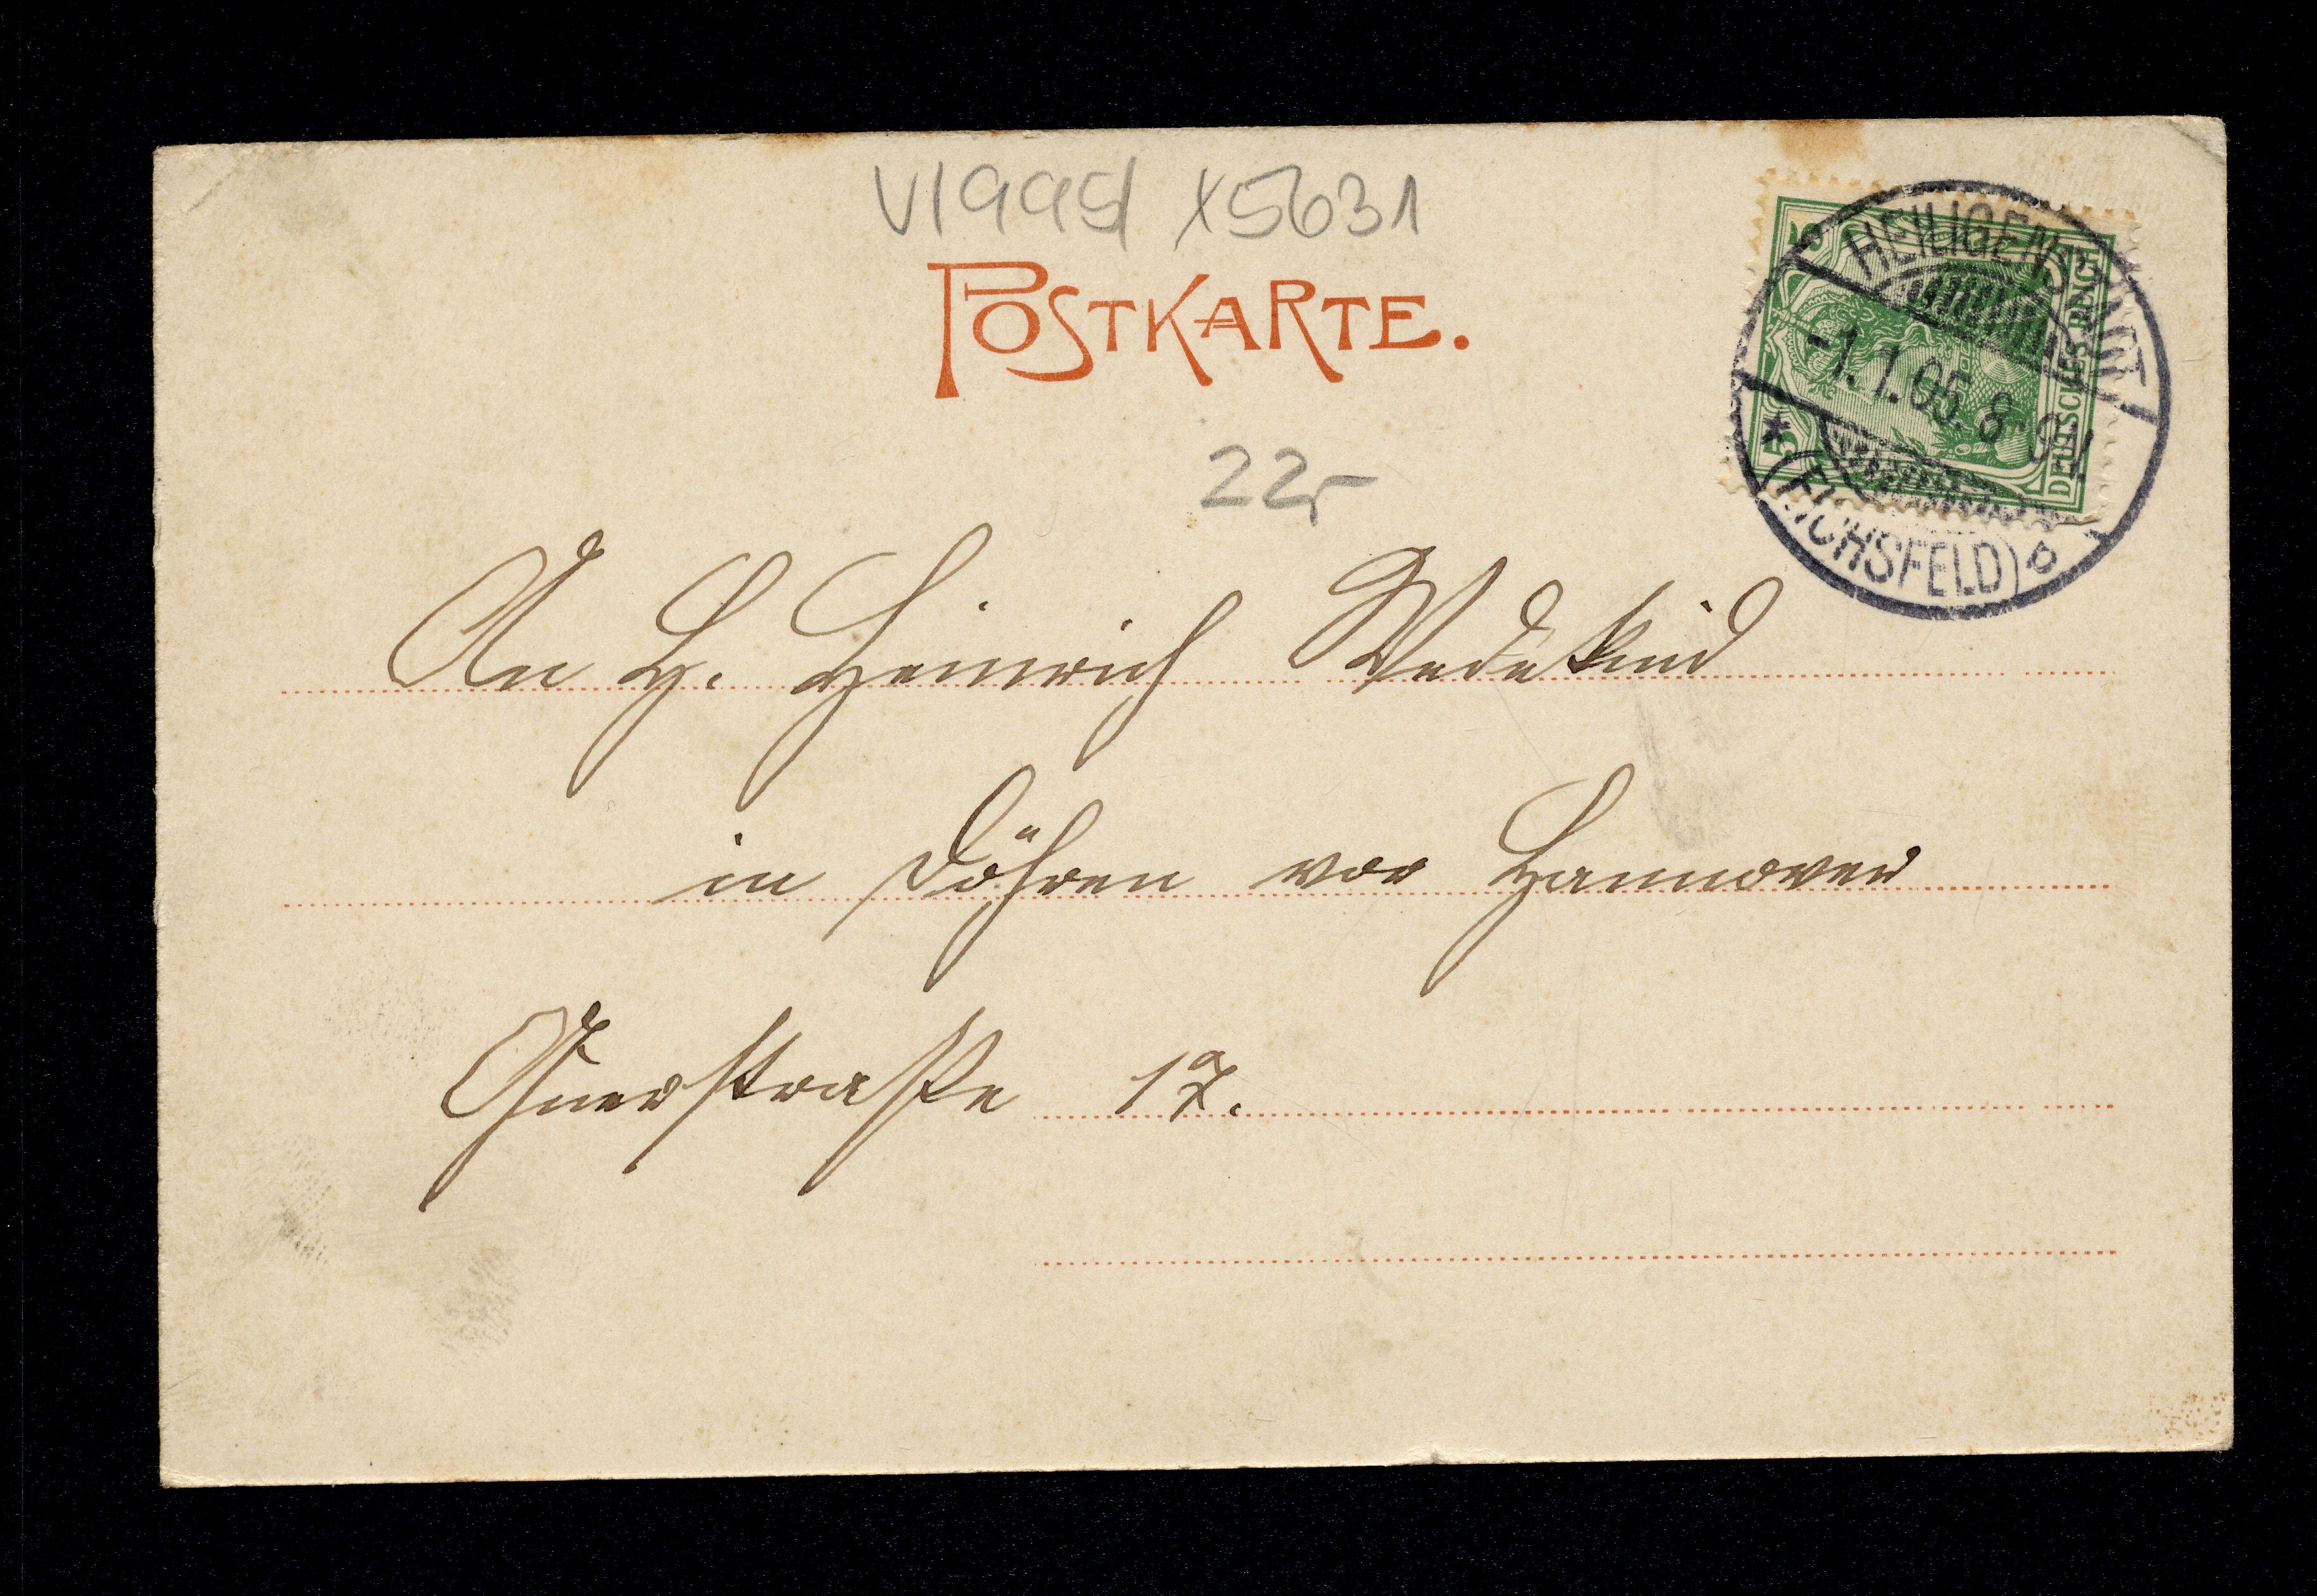 V1995/ X5631
POSTKARTE.
22,-
An H. Heinrich Wedekind
in Döhren vor Hannover
Querstraße 17.
DEUTSCHES REICH
5 5
HEILIGENSTADT
-1.1.05. 8-9V
* (EICHSFELD) b